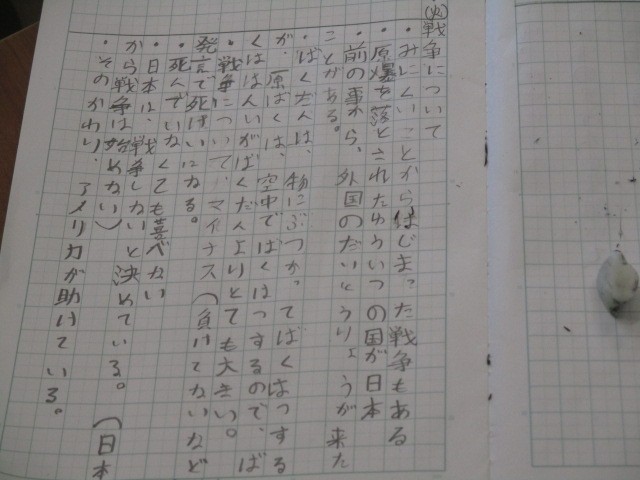 (火)戦争について
・みにくいことからはじまった戦争もある
・原爆を落とされたゆういつの国が日本
・前の事から、外国のだいとうりょうが来た
ことがある。
・ばくだんは、物にぶつかってばくはつする
が、原ばくは、空中でばくはつするので、ば
くははんいがばくだんよりとても大きい。
・戦争について、マイナス(負けてないなど
発言で死けいになる。
死んでいなくても喜べない
・日本は、戦争しないと決めている。(日本
から戦争は、始めない)
・そのかわり、アメリカが助けている。